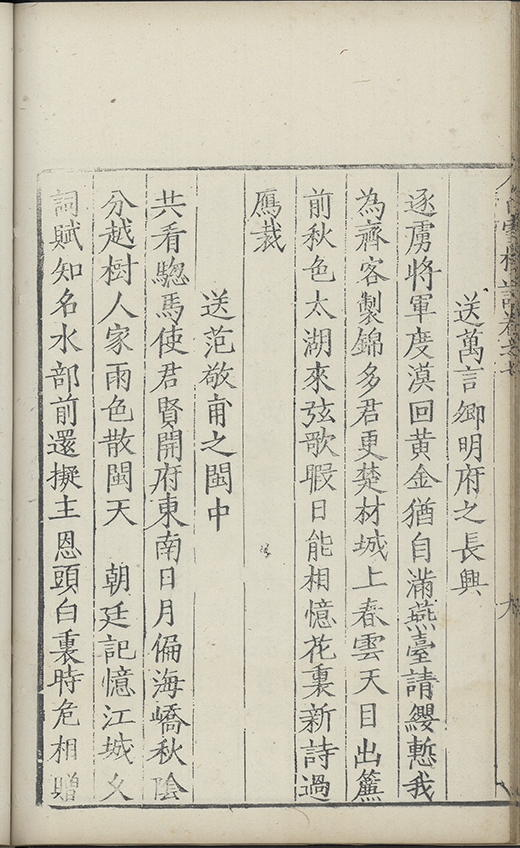 送萬言卿明府之長興
逐虜將軍度漠回黃金猶自滿燕臺請纓慙我
為齊客製錦多君更楚材城上春雲天目出簾
前秋色太湖來弦歌暇日能相憶花裏新詩過
鴈裁
送范敬甫之閩中
共看驄馬使君賢開府東南日月偏海嶠秋陰
分越樹人家雨色散閩天 朝廷記憶江城久
詞賦知名水部前還擬主恩頭白裏時危相贈